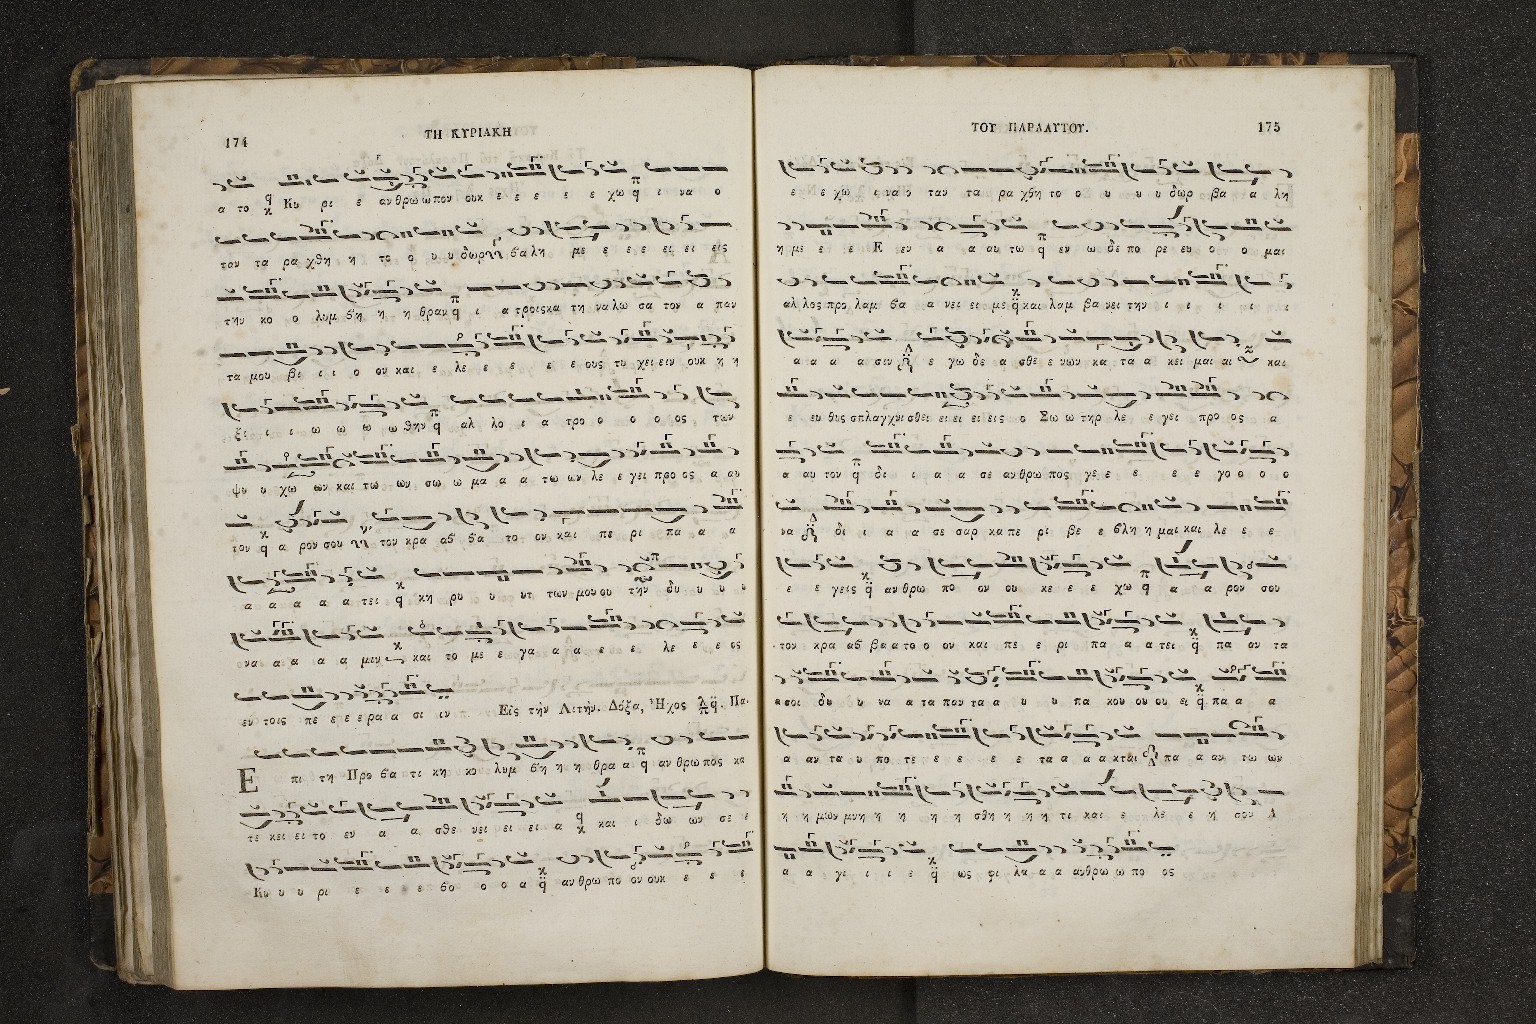 174
ΤΗ ΚΥΡΙΑΚΗ
α το Κυ ρι ε αν θρω ω πον ουκ ε ε ε ε ε χω ι να ο
ταν τα ρα χθη η το ο υ υ δωρ βα λη με ε ε ε ει ει εις
την κο ο λυμ βη η η θραν ι α τροις κα τη να λω σα τον α παν
τα μου βι ι ι ο ον και ε λε ε ε ε ε ους τυ χει ειν ουκ η η
ξι ι ι ω ω ω ω θην αλ λο ι α τρο ο ο ο ος των
ψυ υ χω ων και τω ων σω ω μα α α τω ων λε ε γει προ ος α αυ
τον α ρον σου τον κρα αβ βα το ον και πε ρι πα α α
α α α α α τει κη ρυ υ υτ των μου ου την δυ υ υ υ
να α α α α μιν και το με ε γα α α ε ε λε ε ε ος
εν τοις πε ε ε ε ρα α σι ιν Εἰς τὴν Λιτήν. Δόξα, Ἦχος Πα.
Ε πι τη Προ βα τι κη κο λυμ βη η η θρα α αν θρω πος κα
τε κει ει το εν α α σθε νει ει ει α και ι δω ων σε ε
Κυ υ υ ρι ε ε ε βο ο ο α αν θρω πο ον ουκ ε ε ε
ΤΟΥ ΠΑΡΑΛΥΤΟΥ.
175
ε ε χω ι να ο ταν τα ρα χθη το ο υ υ υ δωρ βα α λη
η με ε ε Ε εν α α αυ τω εν ω δε πο ρε ευ ο ο μαι
αλ λος προ λαμ βα α νει ει με και λαμ βα νει την ι ι ι ι ι
α α α α σιν ε γω δε α σθε ε νων κα τα α κει μαι αι και
ε ευ θυς σπλαγχνι σθει ει ει ει εις ο Σω ω τηρ λε ε γει προ ος α
α αυ τον δι ι α α σε αν θρω πος γε ε ε ε ε γο ο ο ο
να δι ι α α σε σαρ κα πε ρι βε ε βλη η μαι και λε ε ε
ε ε γεις αν θρω πο ον ου κε ε ε χω α α ρον σου
τον κρα αβ βα α το ο ον και πε ε ρι πα α α τει πα αν τα
α σοι δυ υ να α τα παν τα α υ υ πα κου ου ου ει πα α α
α αν τα υ πο τε ε ε ε ε τα α α α κται πα α αν τω ων
η η μων μνη η η η η σθη η η η τι και ε λε ε η σον Α
α α γι ι ι ε ως φι λα α α αν θρω ω πο ος